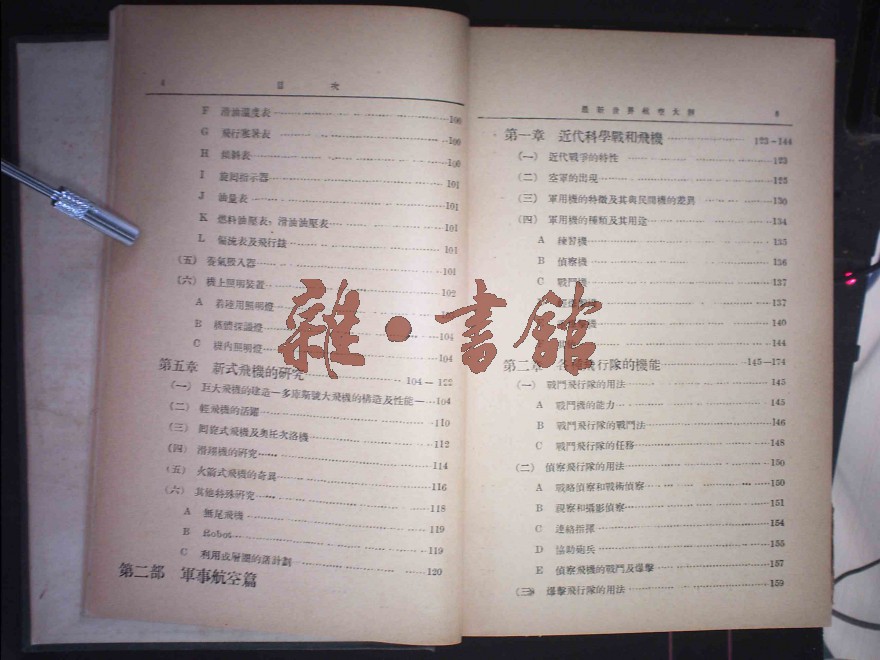 4 目次
F 滑油溫度表 100
G 飛行鐘暑表 100
H 傾斜表 100
I 旋回指示器 101
J 油量表 101
K 燃料油壓表，滑油油壓表 101
L 偏流表及飛行鏡 101
(五) 養氣吸入器 101
(六) 機上照明裝置 102
A 着陸用照明燈
B 機體探識燈 104
C 機內照明燈 104
第五章 新式飛機的研究 104—122
(一) 巨大飛機的建造—多庫斯號大飛機的構造及性能— 104
(二) 輕飛機的活躍 110
(三) 迴旋式飛機及奧托次洛機 112
(四) 滑翔機的研究 114
(五) 火箭式飛機的奇異 116
(六) 其他特殊研究 118
A 無尾飛機 119
B Robot 119
C 利用成層圈的諸計劃 120
第二部 軍事航空篇
最新世界航空大觀
第一章 近代科學戰和飛機 123—144
(一) 近代戰爭的特性 123
(二) 空軍的出現 125
(三) 軍用機的特徵及其與民間機的差異 130
(四) 軍用機的種類及其用途 134
A 練習機 135
B 偵察機 136
C 戰鬥機 137
137
機 140
144
第二章 各種飛行隊的機能 145—174
(一) 戰鬥飛行隊的用法 145
A 戰鬥機的能力 145
B 戰鬥飛行隊的戰鬥法 146
C 戰鬥飛行隊的任務 148
(二) 偵察飛行隊的用法 150
A 戰略偵察和戰術偵察 150
B 視察和攝影偵察 151
C 連絡指揮 154
D 協助砲兵 155
E 偵察飛機的戰鬥及爆擊 157
(三) 爆擊飛行隊的用法 159
雜·書館